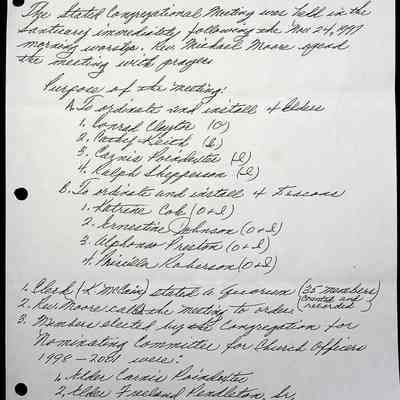 The Stated Congregational Meeting was held in the
Santuary immediately following the Nov 24, 1997
morning worship. Rev. Michael Moore opend
the meeting with prayer
Purpose of the meeting:
A. To ordinate and install 4 Elders
1. Conrad Clayton (O)
2. Cathy Keith (I)
3. Carnis Poindexter (I)
4. Ralph Shepperson (I)
B. To ordinate and install 4 Deacons
1. Katrine Cob (O+I)
2. Ernestine Johnson (O+I)
3. Alphonso Preston (O+I)
4. Priscilla Roberson (O+I)
1. Clerk (K. McCain) stated a Quorum (35 members) counted and recorded
2. Rev. Moore called the meeting to order
3. Members elected by the Congregation for
Nominating Committee for Church Officers
1998-2001 were:
1. Elder Carnis Poindexter
2. Elder Freeland Pendleton Sr.